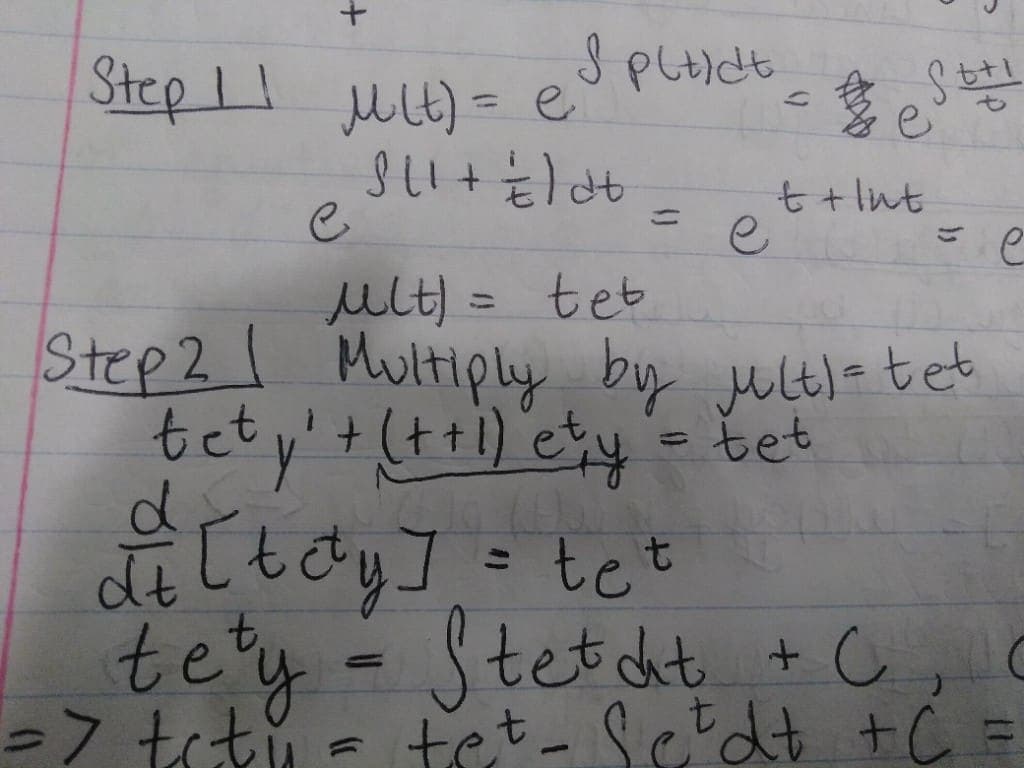 Step 1 | μ(t) = e^∫p(t)dt = e^∫(t+1)/t
e^∫(1 + 1/t) dt = e^t + lnt = e
μ(t) = te^t
Step 2 | Multiply by μ(t) = te^t
te^t y' + (t+1) e^t y = te^t
d/dt [te^t y] = te^t
te^t y = ∫te^t dt + C,
=> te^t y = te^t - ∫e^t dt + C =